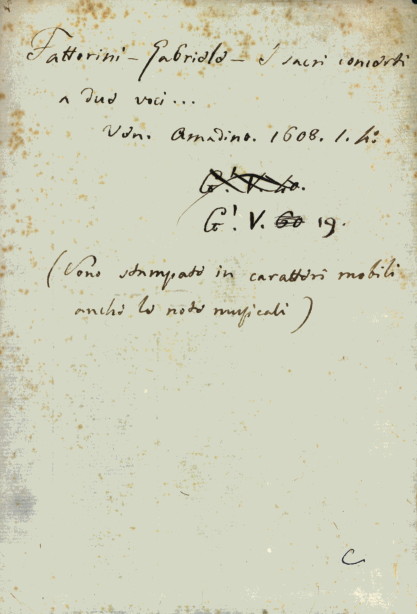 Fattorini - Gabriele - I sacri concerti
a due voci...
Ven. Amadino. 1608. 1. 4.º
G! V. 40.
G! V. 60 19.
(Sono stampate in caratteri mobili
anche le note musicali)
C